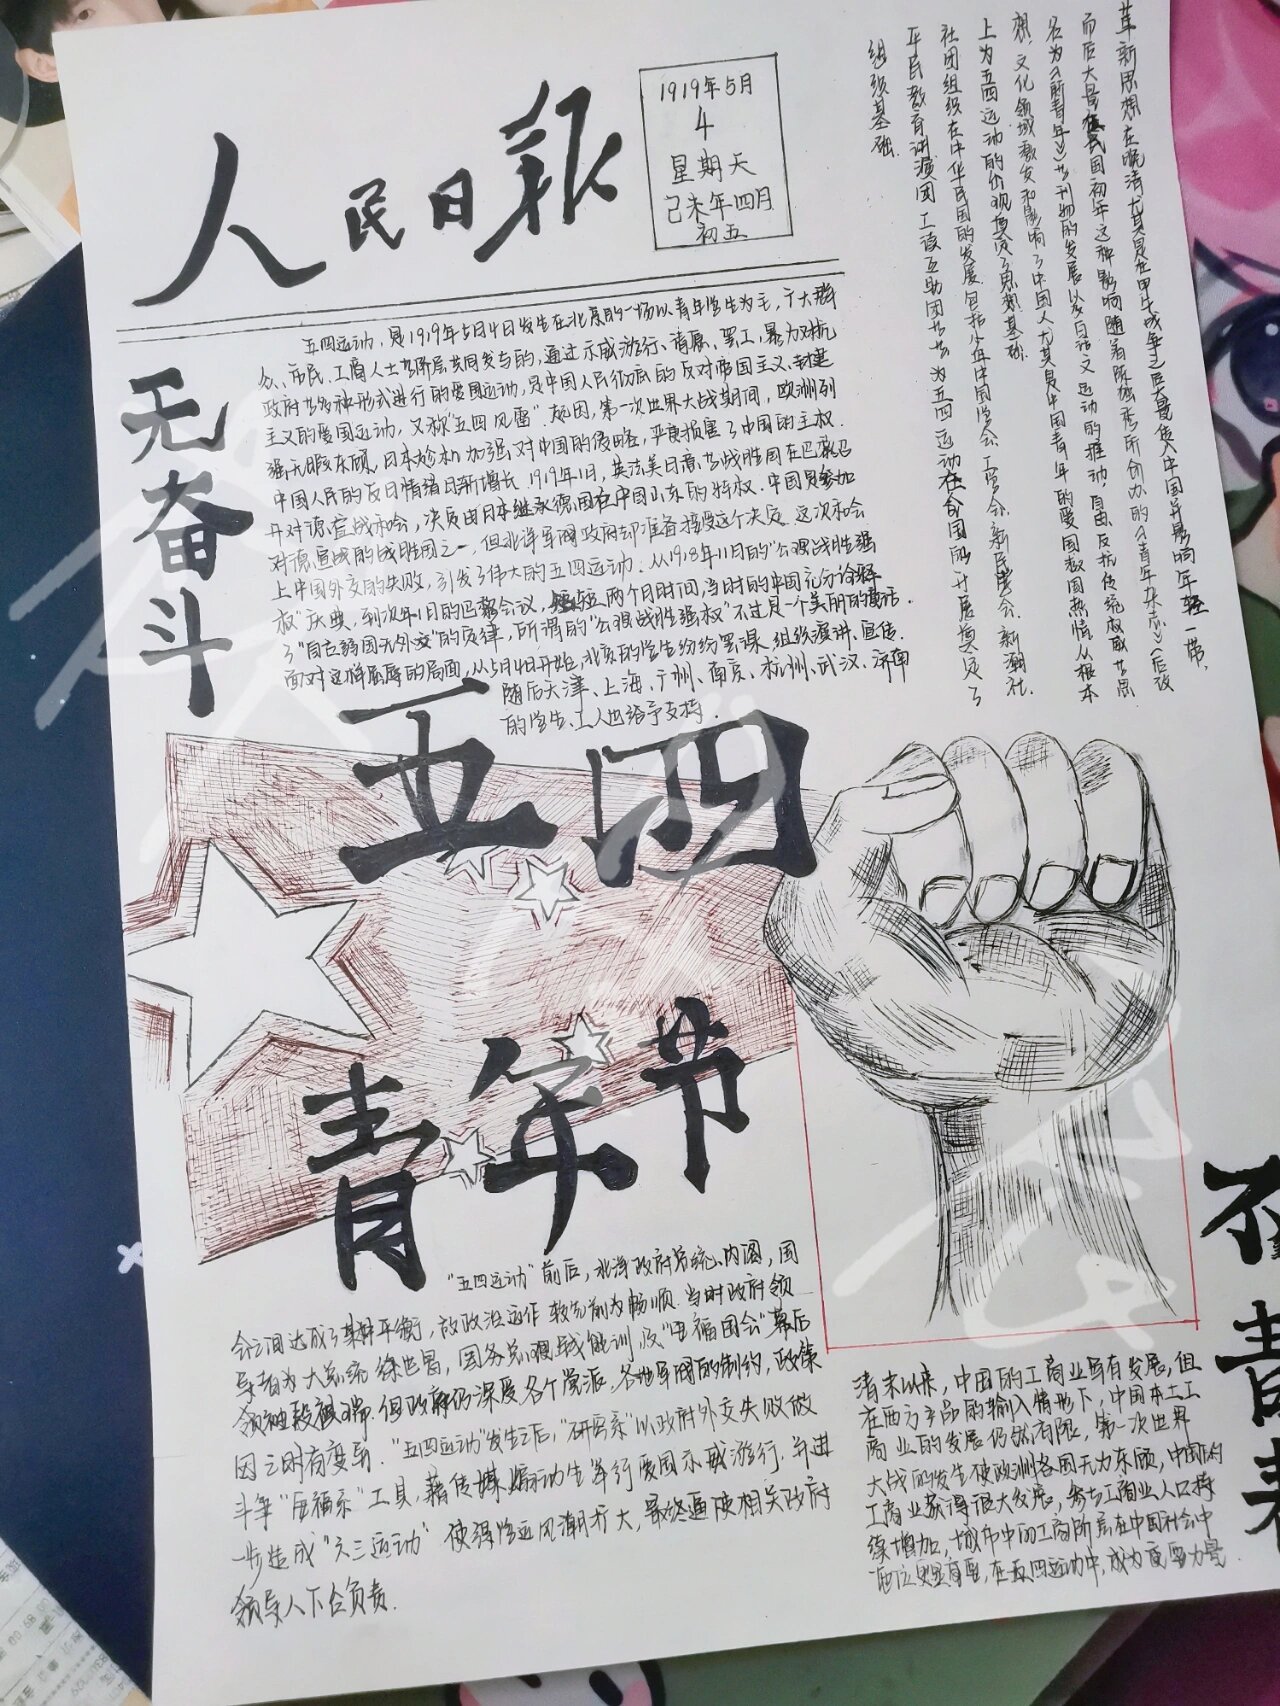 人民日报
1919年5月
4
星期天
己未年四月
初五
无奋斗
五四运动，是1919年5月4日发生在北京的一场以青年学生为主，广大群
众、市民、工商人士等阶层共同参与的，通过示威游行、请愿、罢工、暴力对抗
政府等多种形式进行的爱国运动，是中国人民彻底的反对帝国主义、封建
主义的爱国运动，又称"五四风雷"．起因，第一次世界大战期间，欧洲列
强无暇东顾，日本趁机加强对中国的侵略，严重损害了中国的主权．
中国人民的反日情绪日渐增长．1919年1月，英法美日意等战胜国在巴黎召
开对德宣战和会，决定由日本继承德国在中国山东的特权．中国是参加
对德宣战的战胜国之一，但北洋军阀政府却准备接受这个决定．这次和会
上中国外交的失败，引发了伟大的五四运动．从1918年11月的"公理战胜强
权"庆典，到次年1月的巴黎会议，短短两个月时间，当时的中国充分诠释
了"自古弱国无外交"的定律，所谓的"公理战胜强权"不过是一个美丽的童话．
面对这样屈辱的局面，从5月4日开始，北京的学生纷纷罢课，组织演讲、宣传．
随后天津、上海、广州、南京、杭州、武汉、济南
的学生、工人也给予支持．
革新思想在晚清尤其是在甲午战争之后大量使中国并影响年轻一带，
而后大量民国初年这种影响随着陈独秀所创办的《青年杂志》（后改
名为《新青年》）等刊物的发展以及白话文运动的推动，自由、反抗传统权威等思
想，文化领域激发和影响了中国人尤其是中国青年的爱国救国热情，从根本
上为五四运动的出现奠定了思想基础．
社团组织在中华民国的发展，包括少年中国学会、工学会、新民学会、新潮社、
平民教育讲演团、工读互助团等等为五四运动在全国的开展奠定了
组织基础．
五四
青年节
"五四运动"前后，北洋政府总统、内阁、国
会之间达成了某种平衡，故政治运作较先前为畅顺．当时政府领
导者为大总统徐世昌，国务总理钱能训，及"安福国会"幕后
领袖段祺瑞．但政府仍深受各个党派、各地军阀的制约，政策
因之时有变动．"五四运动"发生之后，"研究系"以政府外交失败做
斗争"安福系"工具，藉传媒煽动学生举行爱国示威游行，并进
一步造成"六三运动"使得学运风潮扩大，最终逼使相关政府
领导人下台负责．
清末以来，中国的工商业虽有发展，但
在西方产品的输入情形下，中国本土工
商业的发展仍然有限，第一次世界
大战的发生使欧洲各国无力东顾，中国的
工商业获得很大发展，参与工商业人口持
续增加，城市中的工商阶层在中国社会中
地位更显重要，在五四运动中，成为重要力量．
不青春